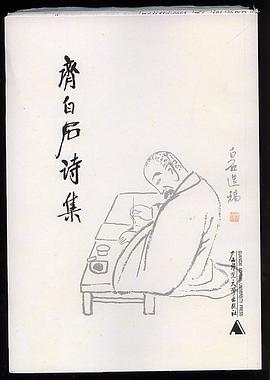 齊白石诗集
白石造稿
广西师范大学出版社
GUANGXI NORMAL UNIVERSITY PRESS